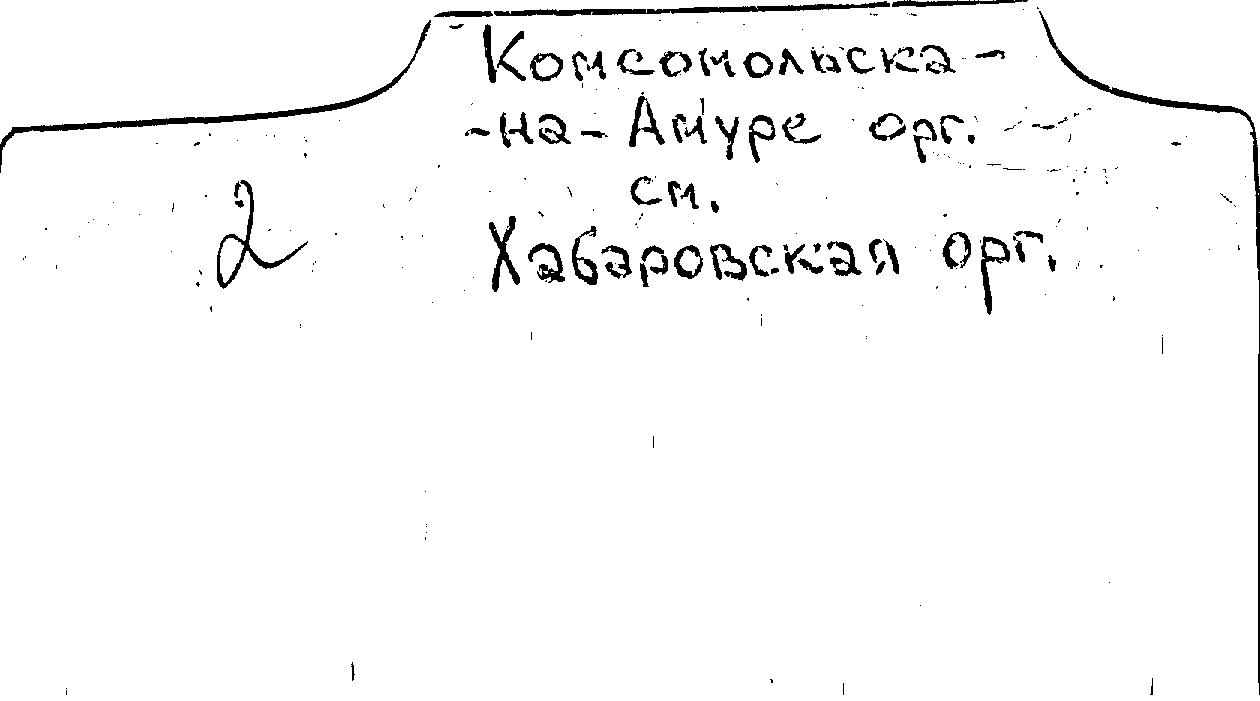 Комсомольска-
-на-Амуре орг.
см.
2
Хабаровская орг.